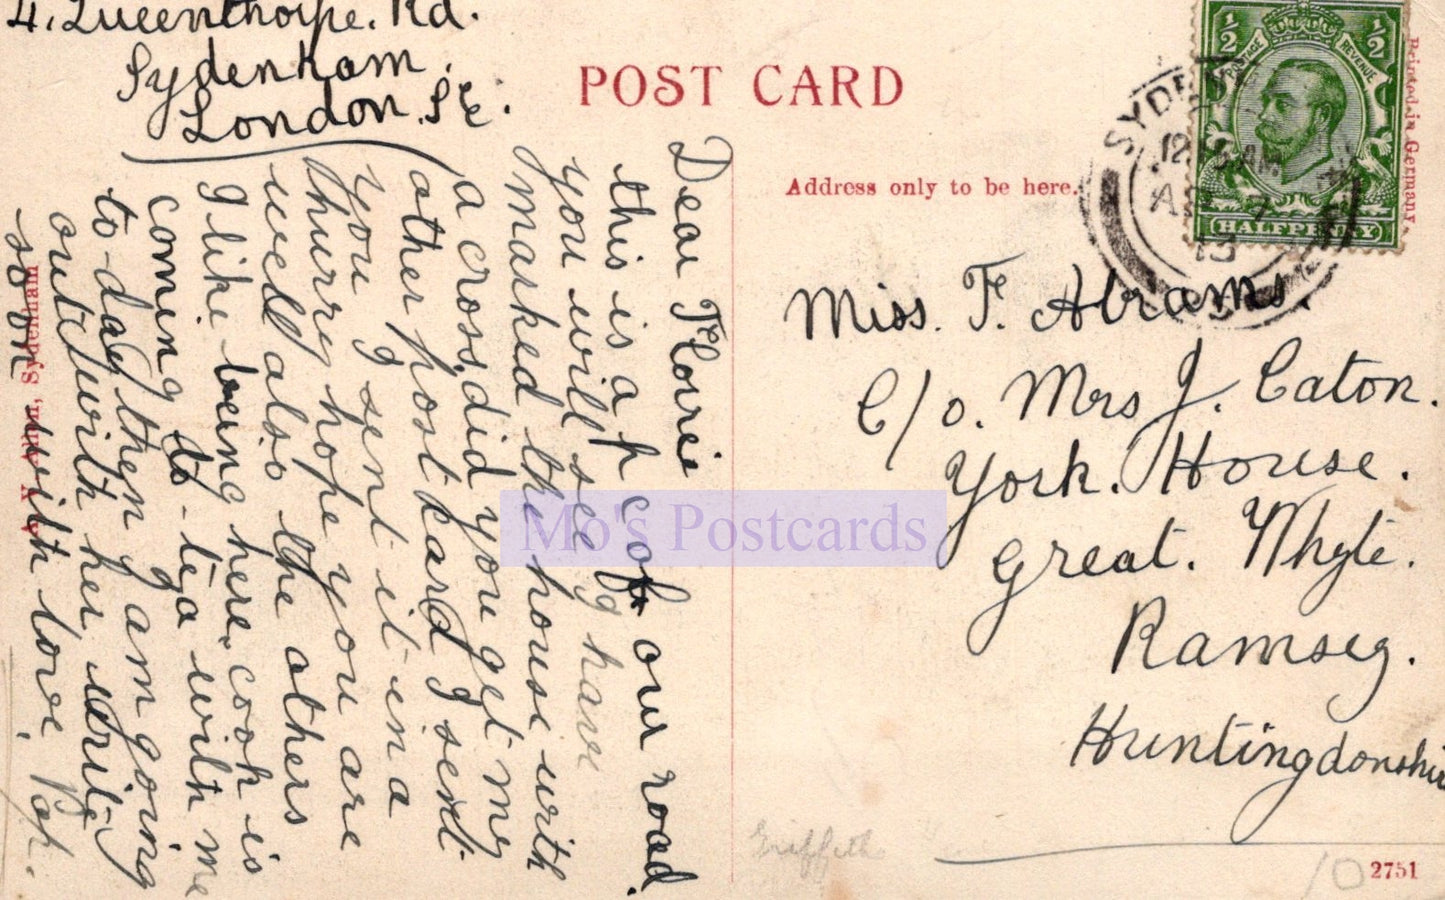 4. Queenthorpe. Rd.
Sydenham.
London. S.E.
Dear Florrie
this is a p c of our road.
you will see I have
marked the house with
a cross, did you get my
other post card I sent
you I sent it in a
hurry hope you are
well also the others
I like being here. cook is
coming to tea with me
to-day then I am going
out with her write
soon with love,
POST CARD
Address only to be here.
½ ½
POSTAGE REVENUE
HALFPENNY
SYDENHAM
12 AM
13
Printed in Germany
Miss. F. Abrams.
C/o. Mrs J. Caton.
York. House.
Great. Whyte.
Ramsey.
Huntingdonshire
Griffith
10
2751
Sydenham
Mo's Postcards